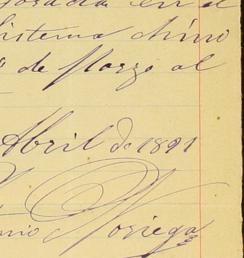 en el
Sistema chino
de Marzo al
Abril de 1891
nio Noriega